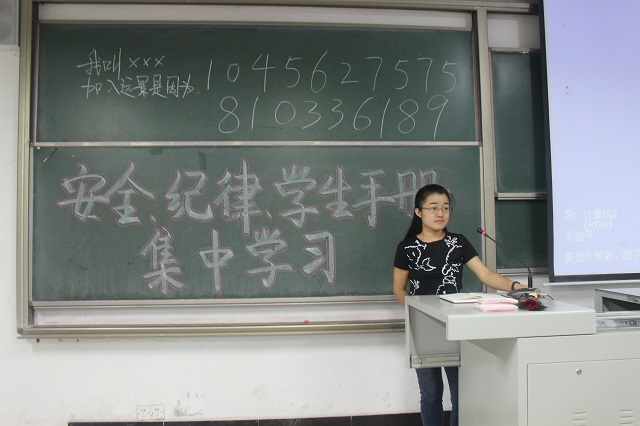 我叫×××
加入远景是因为
1045627575
810336189
安全、纪律、学生手册
集中学习
源：计算机2
(RGB)
无信号